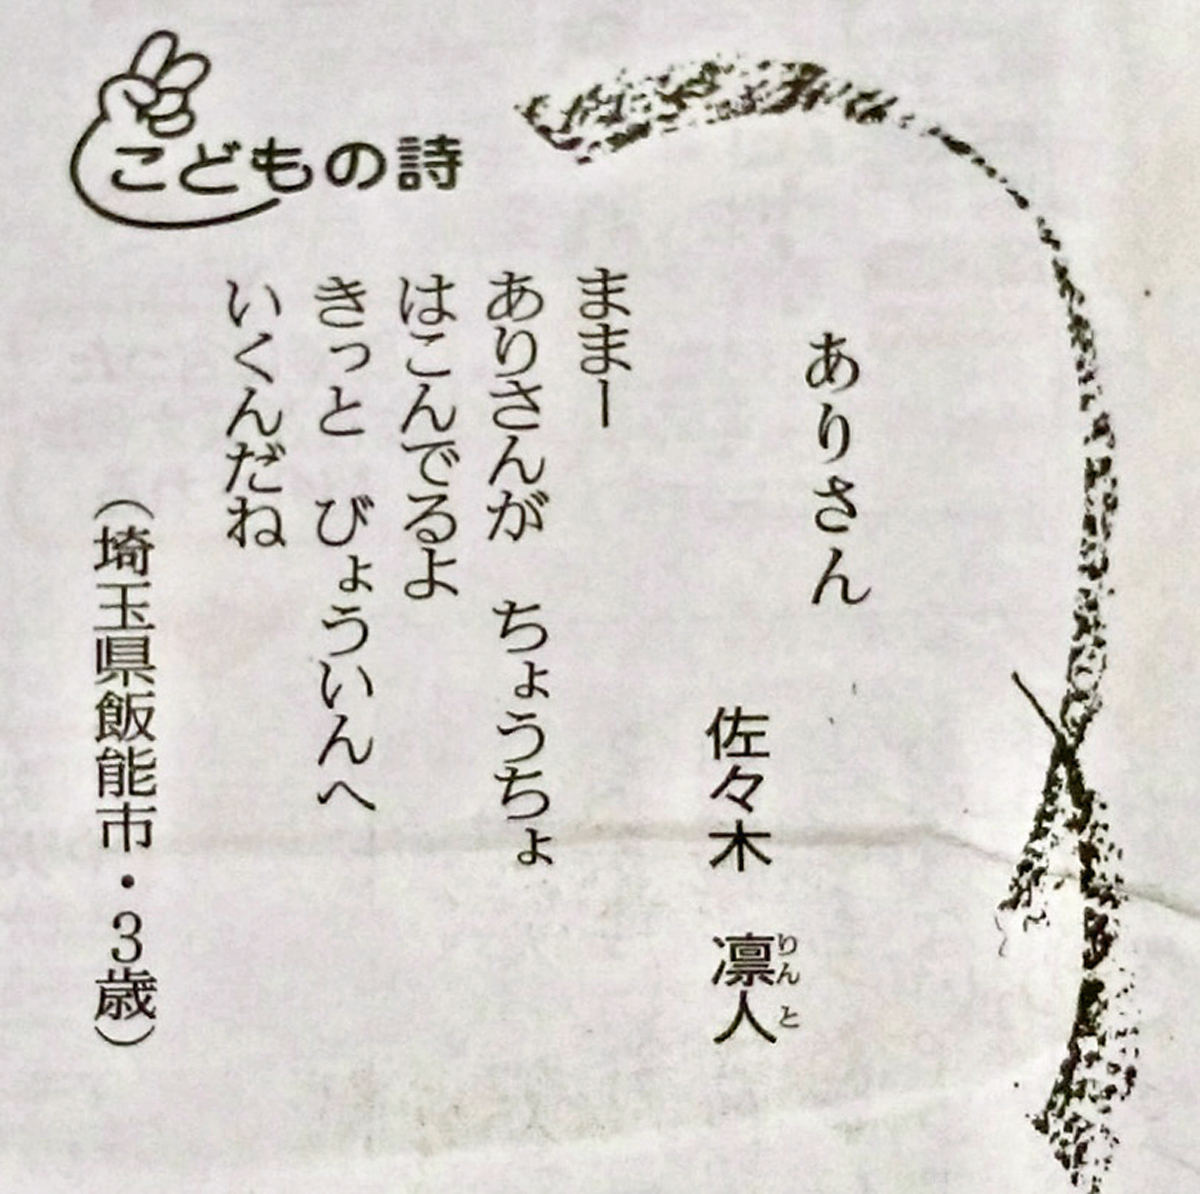 こどもの詩
ありさん
佐々木 凛人
りんと
ままー
ありさんが ちょうちょ
はこんでるよ
きっと びょういんへ
いくんだね
(埼玉県飯能市・3歳)